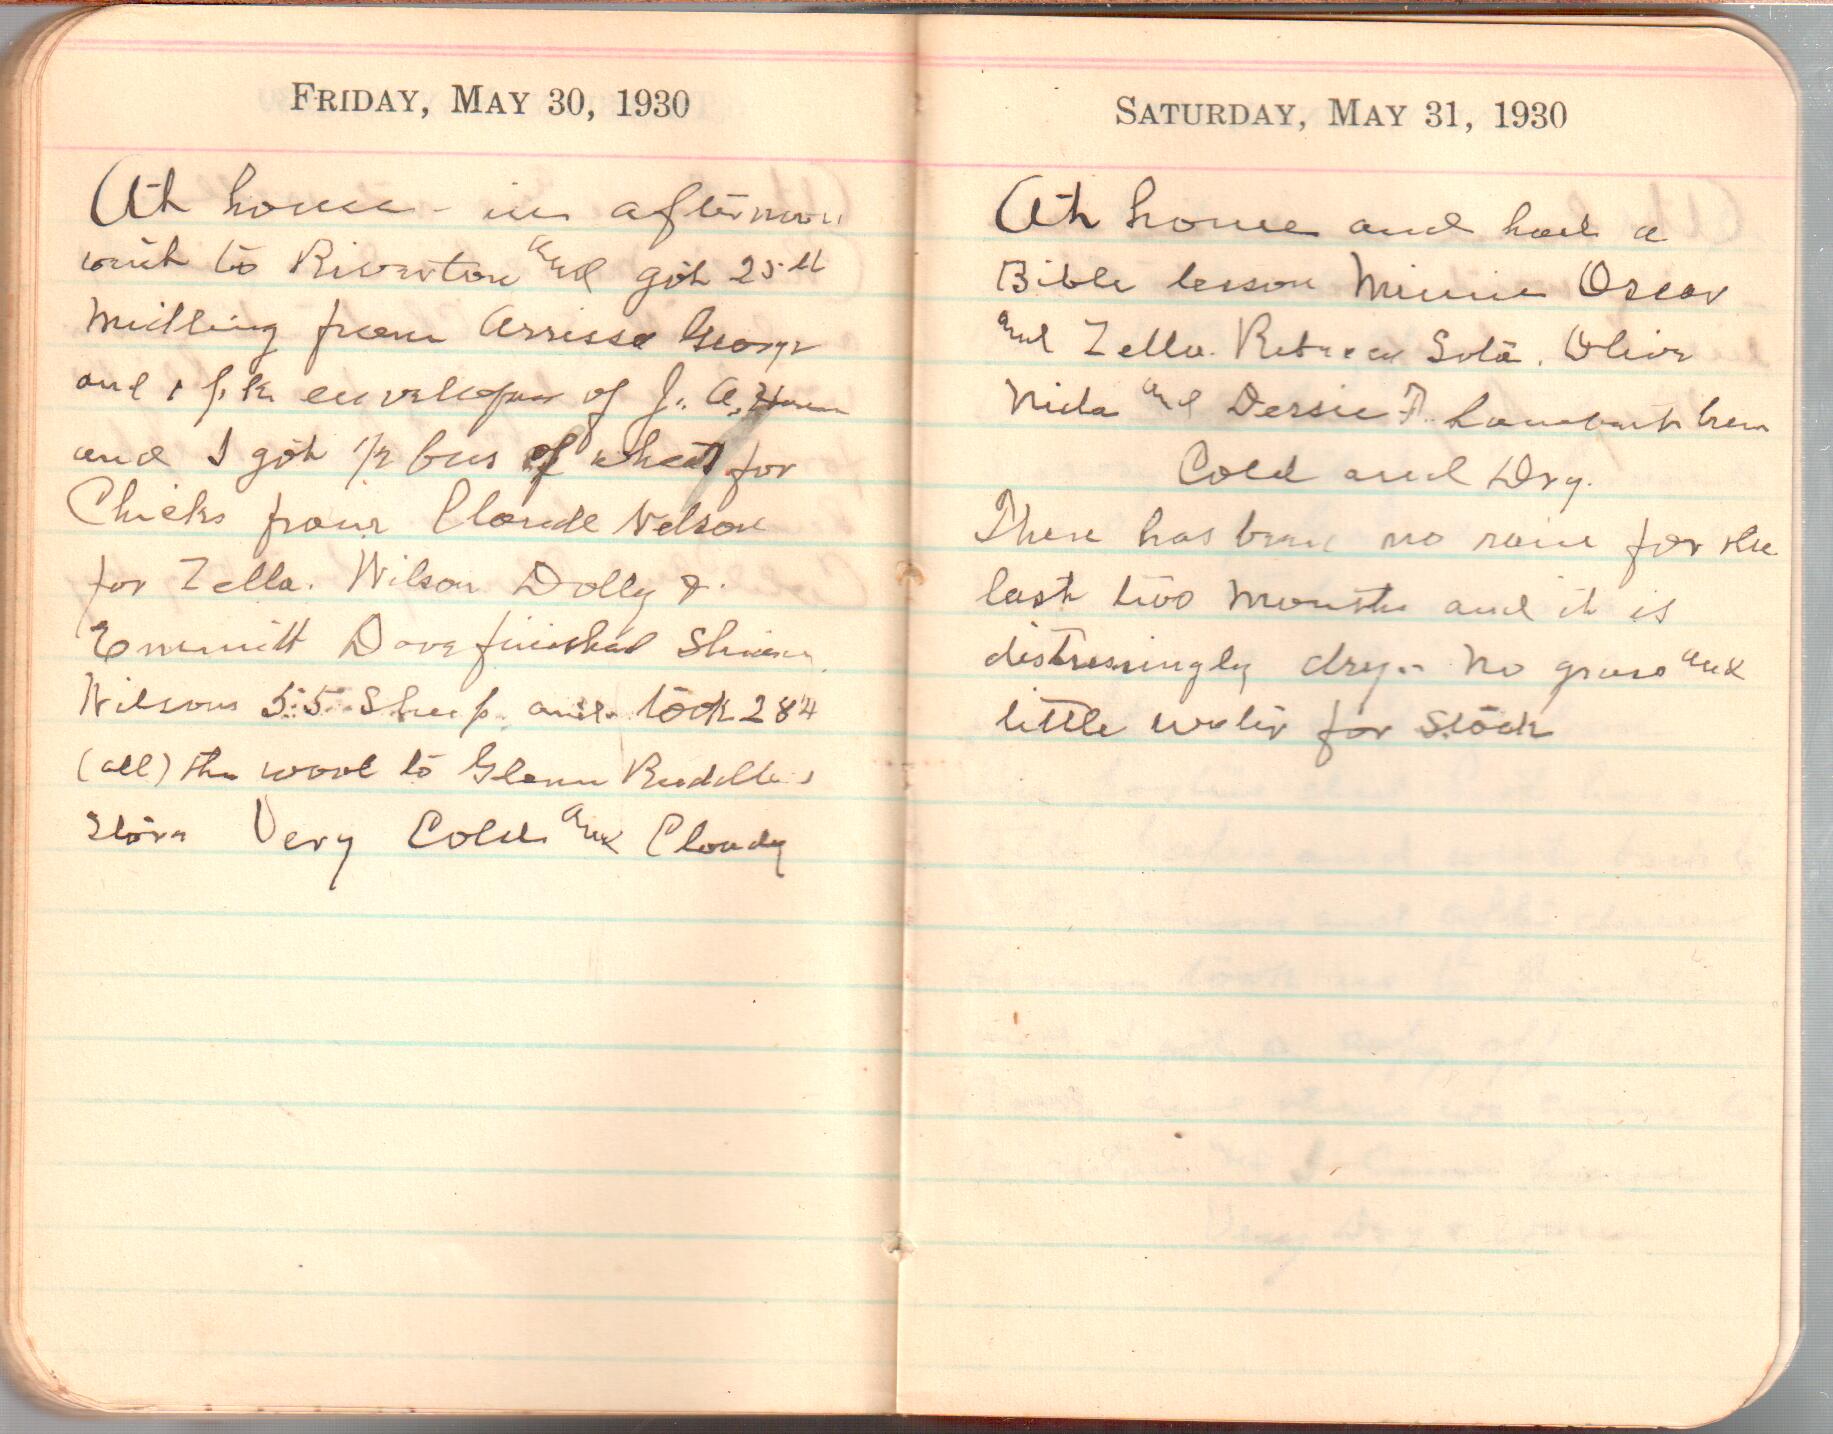 FRIDAY, MAY 30, 1930
At home - in afternoon
went to Riverton and got 25 lb
Middling from George
and 1 pk envelopes of J. A.
and I got 1/2 bus of wheat for
Chicks from Claude Nelson
for Zella. Wilson Dolly &
Emmitt Dove finished
Wilsons 55 Sheep and took 284
(all) the wool to Glenn
Store Very Cold and Cloudy
SATURDAY, MAY 31, 1930
At home and had a
Bible lesson Minnie Oscar
and Zella. Rebecca Olive
Nida and Dessie F. Lambert here
Cold and Dry.
There has been no rain for the
last two months and it is
distressingly dry - no grass and
little water for stock